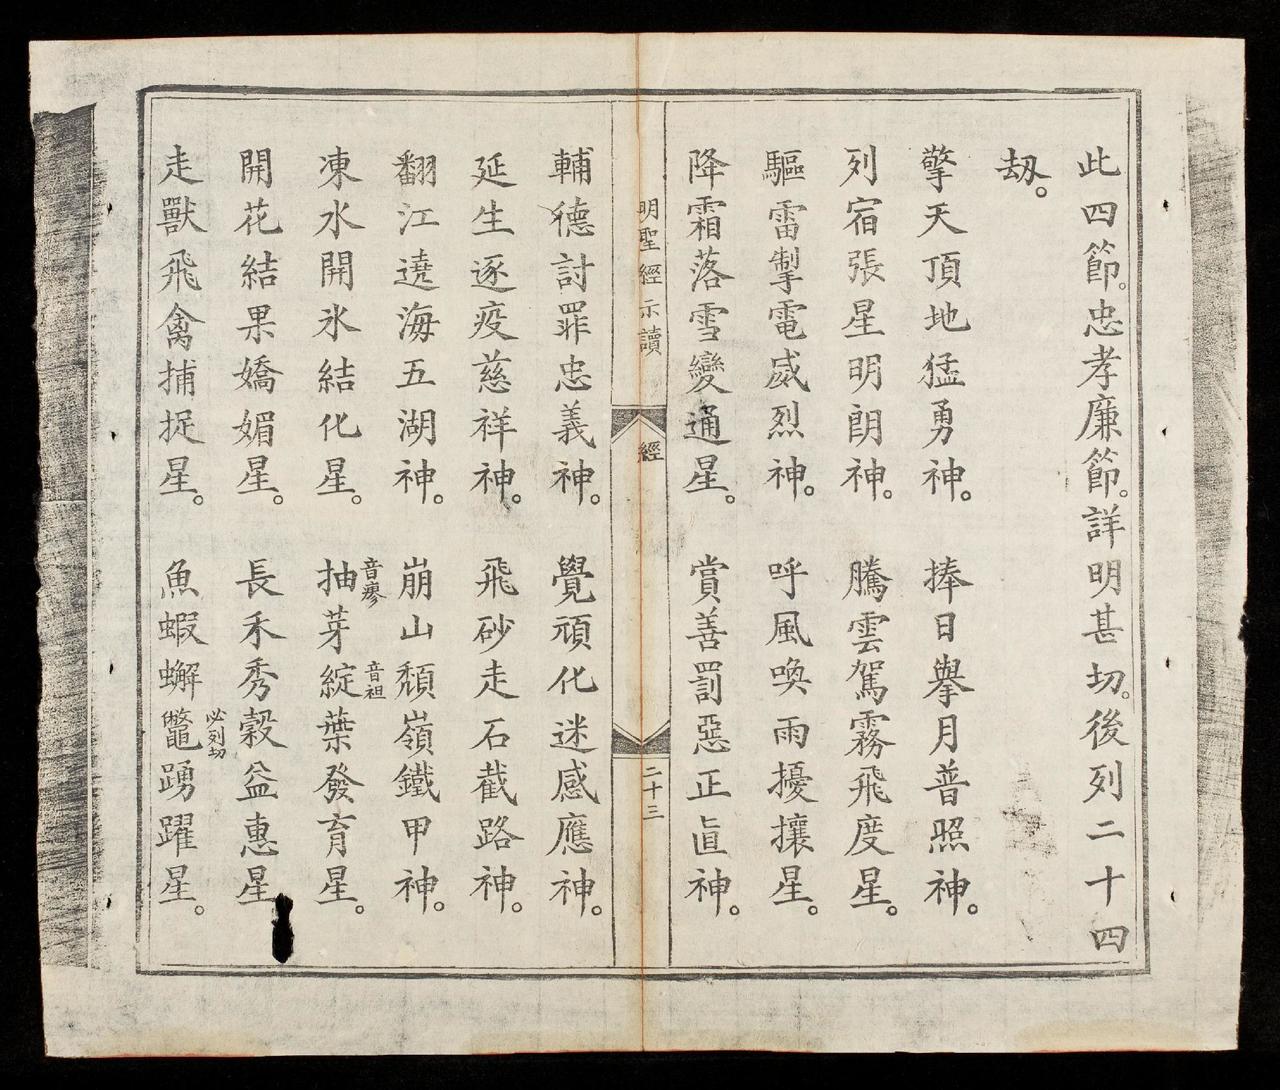 此四節。忠孝廉節。詳明甚切。後列二十四
刼。
擎天頂地猛勇神。　捧日擧月普照神。
列宿張星明朗神。　騰雲駕霧飛度星。
驅雷掣電威烈神。　呼風喚雨擾攘星。
降霜落雪變通星。　賞善罰惡正直神。
明聖經示讀　經　二十三
輔德討罪忠義神。　覺頑化迷感應神。
延生逐疫慈祥神。　飛砂走石截路神。
翻江遶海五湖神。　崩山頹嶺鐵甲神。
凍水開氷結化星。　抽音瘳芽綻音袒葉發育星。
開花結果嬌媚星。　長禾秀穀益惠星
走獸飛禽捕捉星。　魚蝦蠏鼈必列切踴躍星。